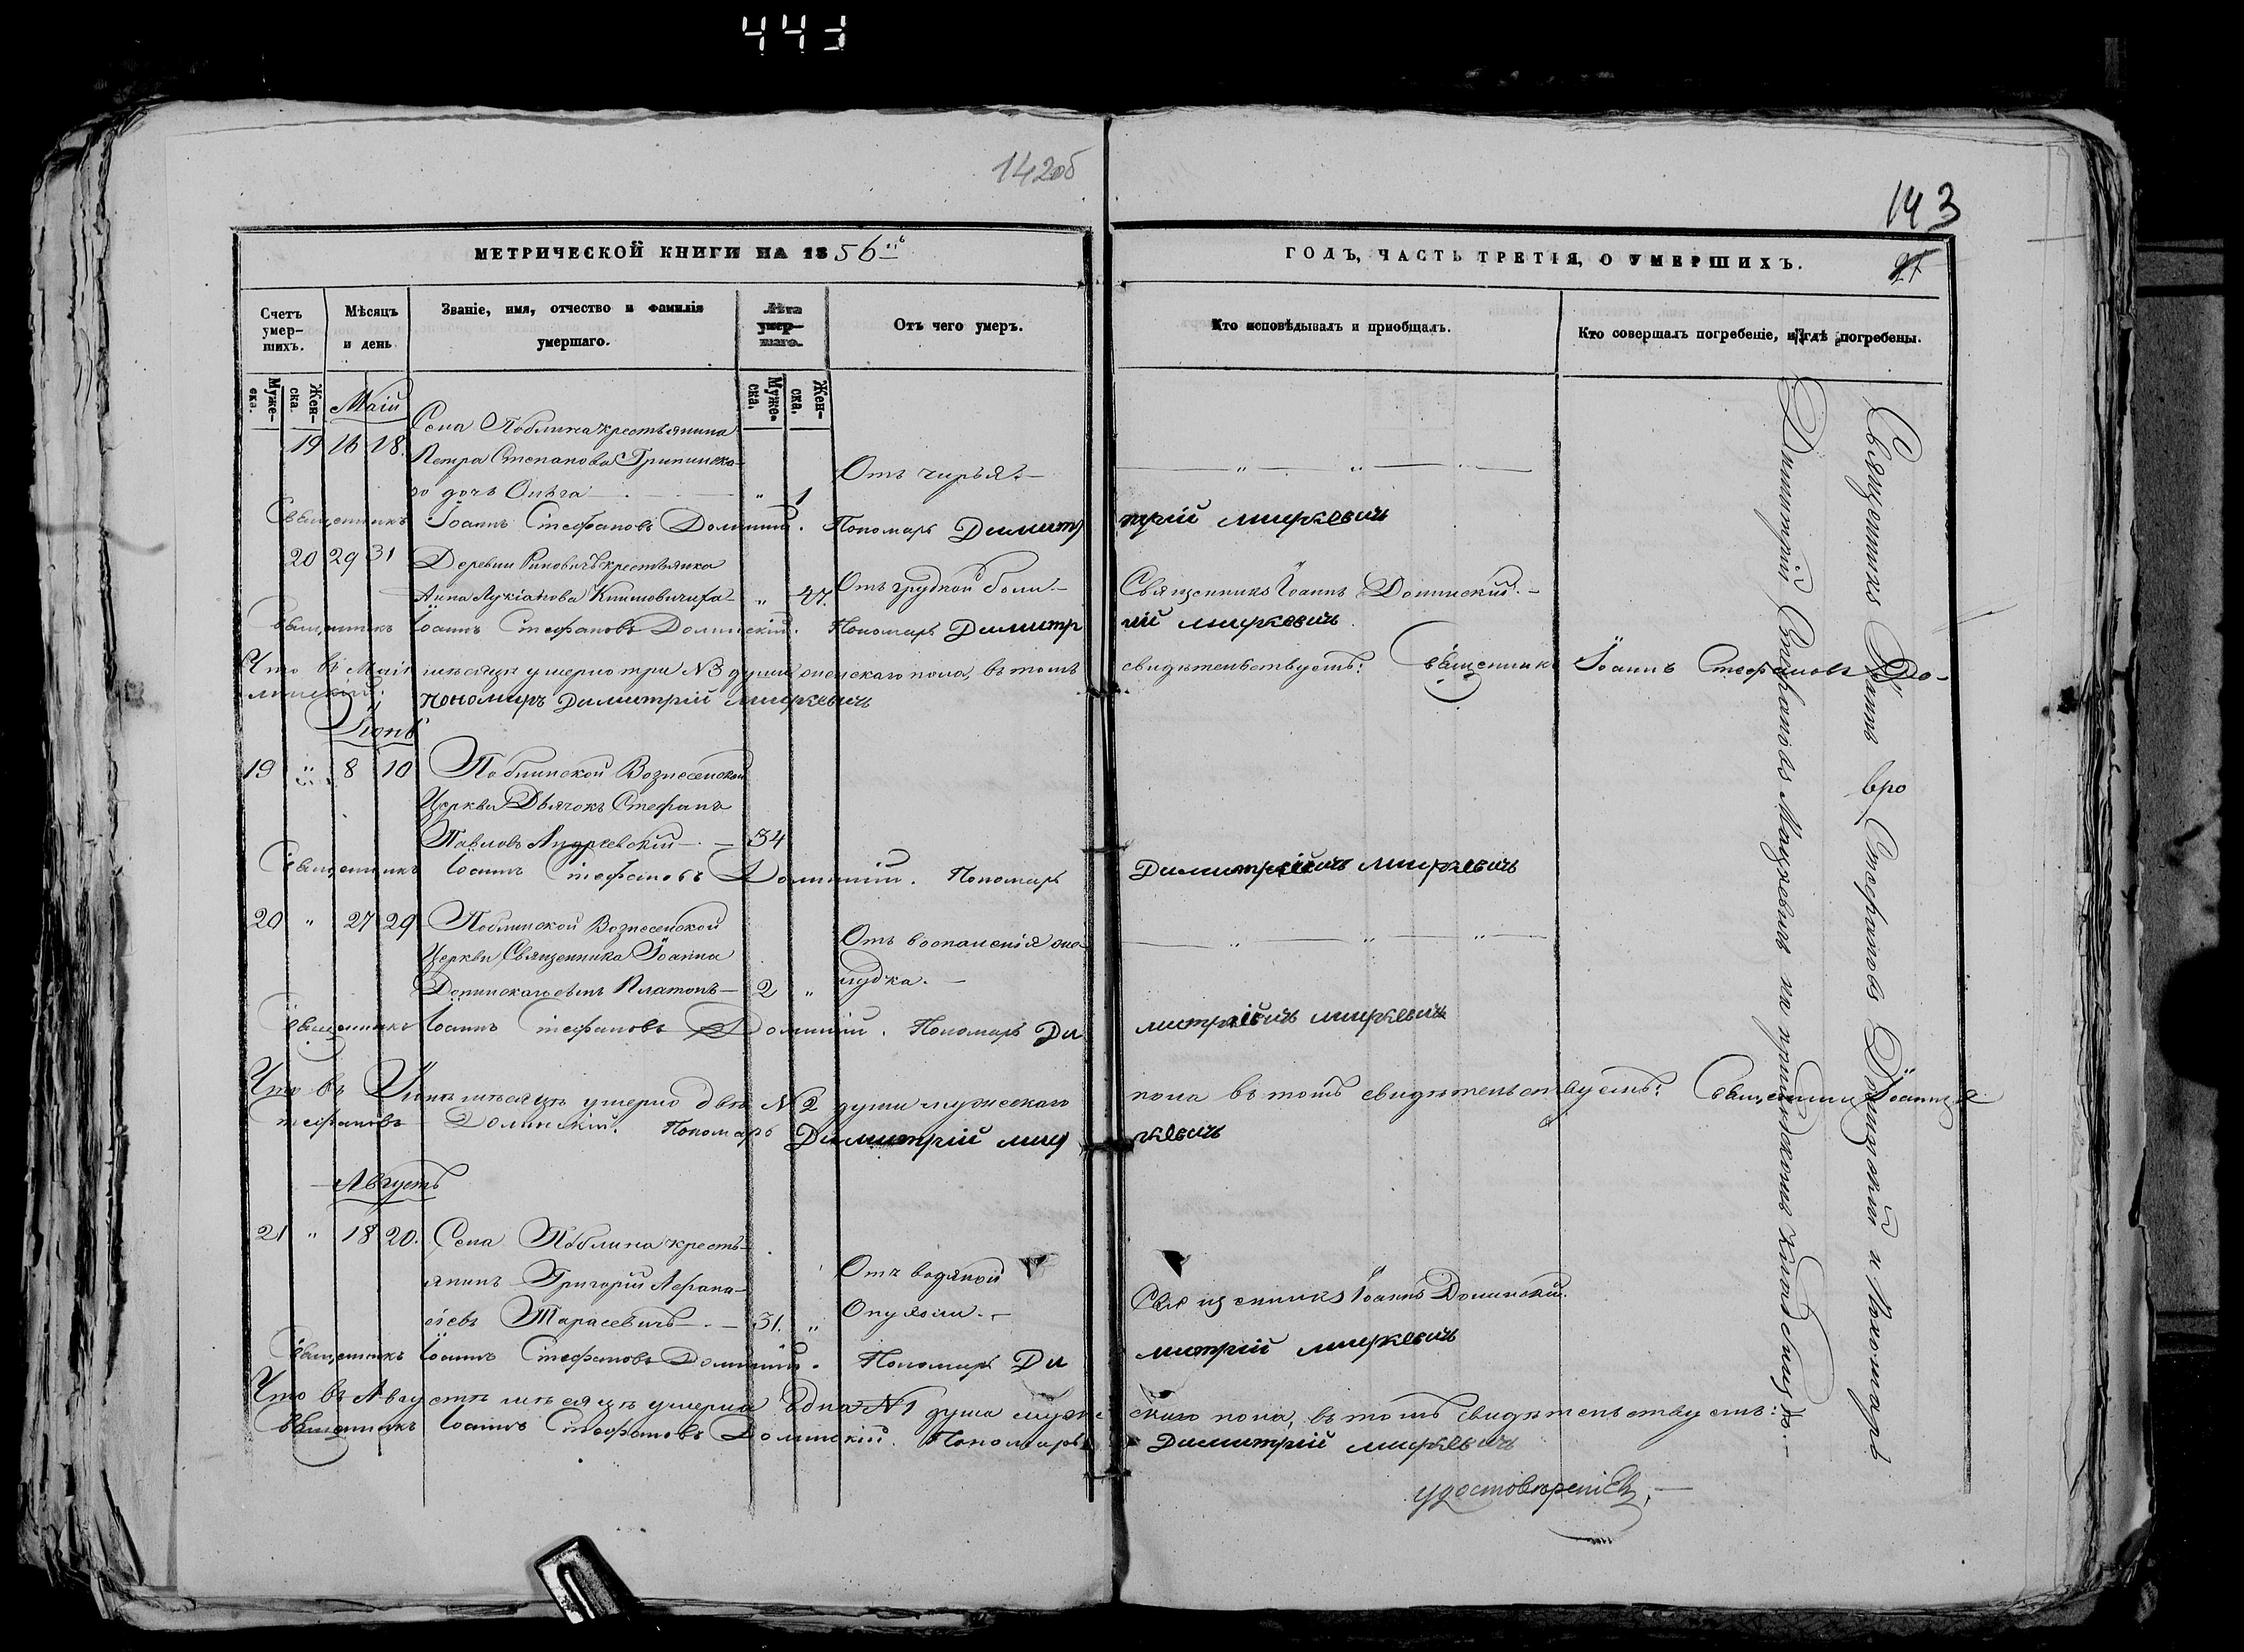 443
142об
143
МЕТРИЧЕСКОЙ КНИГИ НА 1856й
ГОДЪ, ЧАСТЬ ТРЕТІЯ, О УМЕРШИХЪ.
Счетъ умер-шихъ.
Мѣсяцъ и день
Званіе, имя, отчество и фамилія умершаго.
Лѣта умер-шаго.
Отъ чего умеръ.
Кто исповѣдывалъ и приобщалъ.
Кто совершалъ погребеніе, и гдѣ погребены.
Муже-ска.
Жен-ска.
Муже-ска.
Жен-ска.
Маій
Села Поблина крестьянина
19 16 18. Петра Степанова
го дочь " 1 Отъ чирья. —
Священникъ Іоаннъ Стефановъ Долинскій. Пономарь Димитрій Миркевичъ
20 29 31 Деревни крестьянка
Анна Лукіанова " 47. Отъ грудной боли. — Священникъ Іоаннъ Долинскій. —
Священникъ Іоаннъ Стефановъ Долинскій. Пономарь Димитрій Миркевичъ
Что въ Маіи мѣсяцѣ умерло три №3 души женскаго пола, въ томъ свидѣтельствуемъ: Священникъ Іоаннъ Стефановъ До-
линскій. Пономаръ Димитрій Миркевичъ
Іюнь
19 " 8 10 Поблинской Вознесенской
Церкви Дьячокъ Стефанъ
Павловъ Андреевскій — 34
Священникъ Іоаннъ Стефановъ Долинскій. Пономарь Димитрій Миркевичъ
20 " 27 29 Поблинской Вознесенской
Церкви Священника Іоанна
Долинскаго сынъ Платонъ — 2 " Отъ воспаленія желудка. —
Священникъ Іоаннъ Стефановъ Долинскій. Пономарь Димитрій Миркевичъ
Что въ Іюнѣ мѣсяцѣ умерло двѣ №2 души мужескаго пола въ томъ свидѣтельствуемъ: Священникъ Іоаннъ С
тефановъ Долинскій. Пономаръ Димитрій Миркевичъ
Августъ
21 " 18 20. Села Поблина кресть-
янинъ Григорій Афана-
сіевъ Тарасевичъ — 31. " Отъ водяной
Опухоли. — Священникъ Іоаннъ Долинскій.
Священникъ Іоаннъ Стефановъ Долинскій. Пономарь Димитрій Миркевичъ
Что въ Августѣ мѣсяцѣ умерла одна №1 душа мужескаго пола, въ томъ свидѣтельствуемъ:
Священникъ Іоаннъ Стефановъ Долинскій. Пономарь Димитрій Миркевичъ
удостовѣреніе. —
Священникъ Іоаннъ Стефановъ Долинскій и Пономарь
Димитрій на приходскомъ кладбищѣ. —